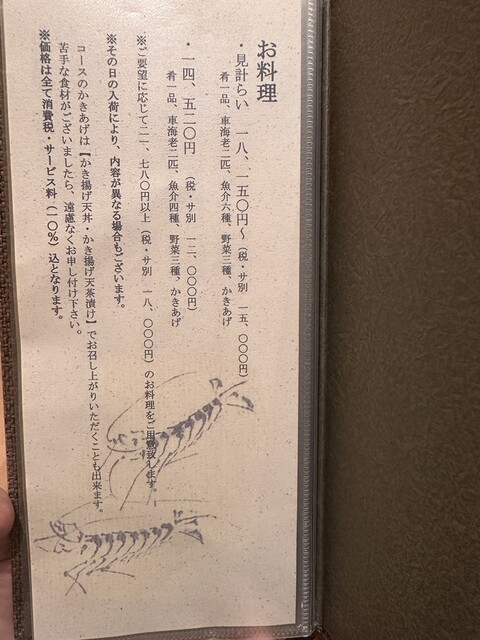 お料理
・見計らい　一八、一五〇円〜（税・サ別　一五、〇〇〇円）
肴一品、車海老二匹、魚介六種、野菜三種、かきあげ
・一四、五二〇円　（税・サ別　一二、〇〇〇円）
肴一品、車海老二匹、魚介四種、野菜三種、かきあげ
※ご要望に応じて二一、七八〇円以上（税・サ別　一八、〇〇〇円）のお料理をご用意致します。
※その日の入荷により、内容が異なる場合もございます。
コースのかきあげは【かき揚げ天丼・かき揚げ天茶漬け】でお召し上がりいただくことも出来ます。
苦手な食材がございましたら、遠慮なくお申し付け下さい。
※価格は全て消費税・サービス料（一〇％）込となります。